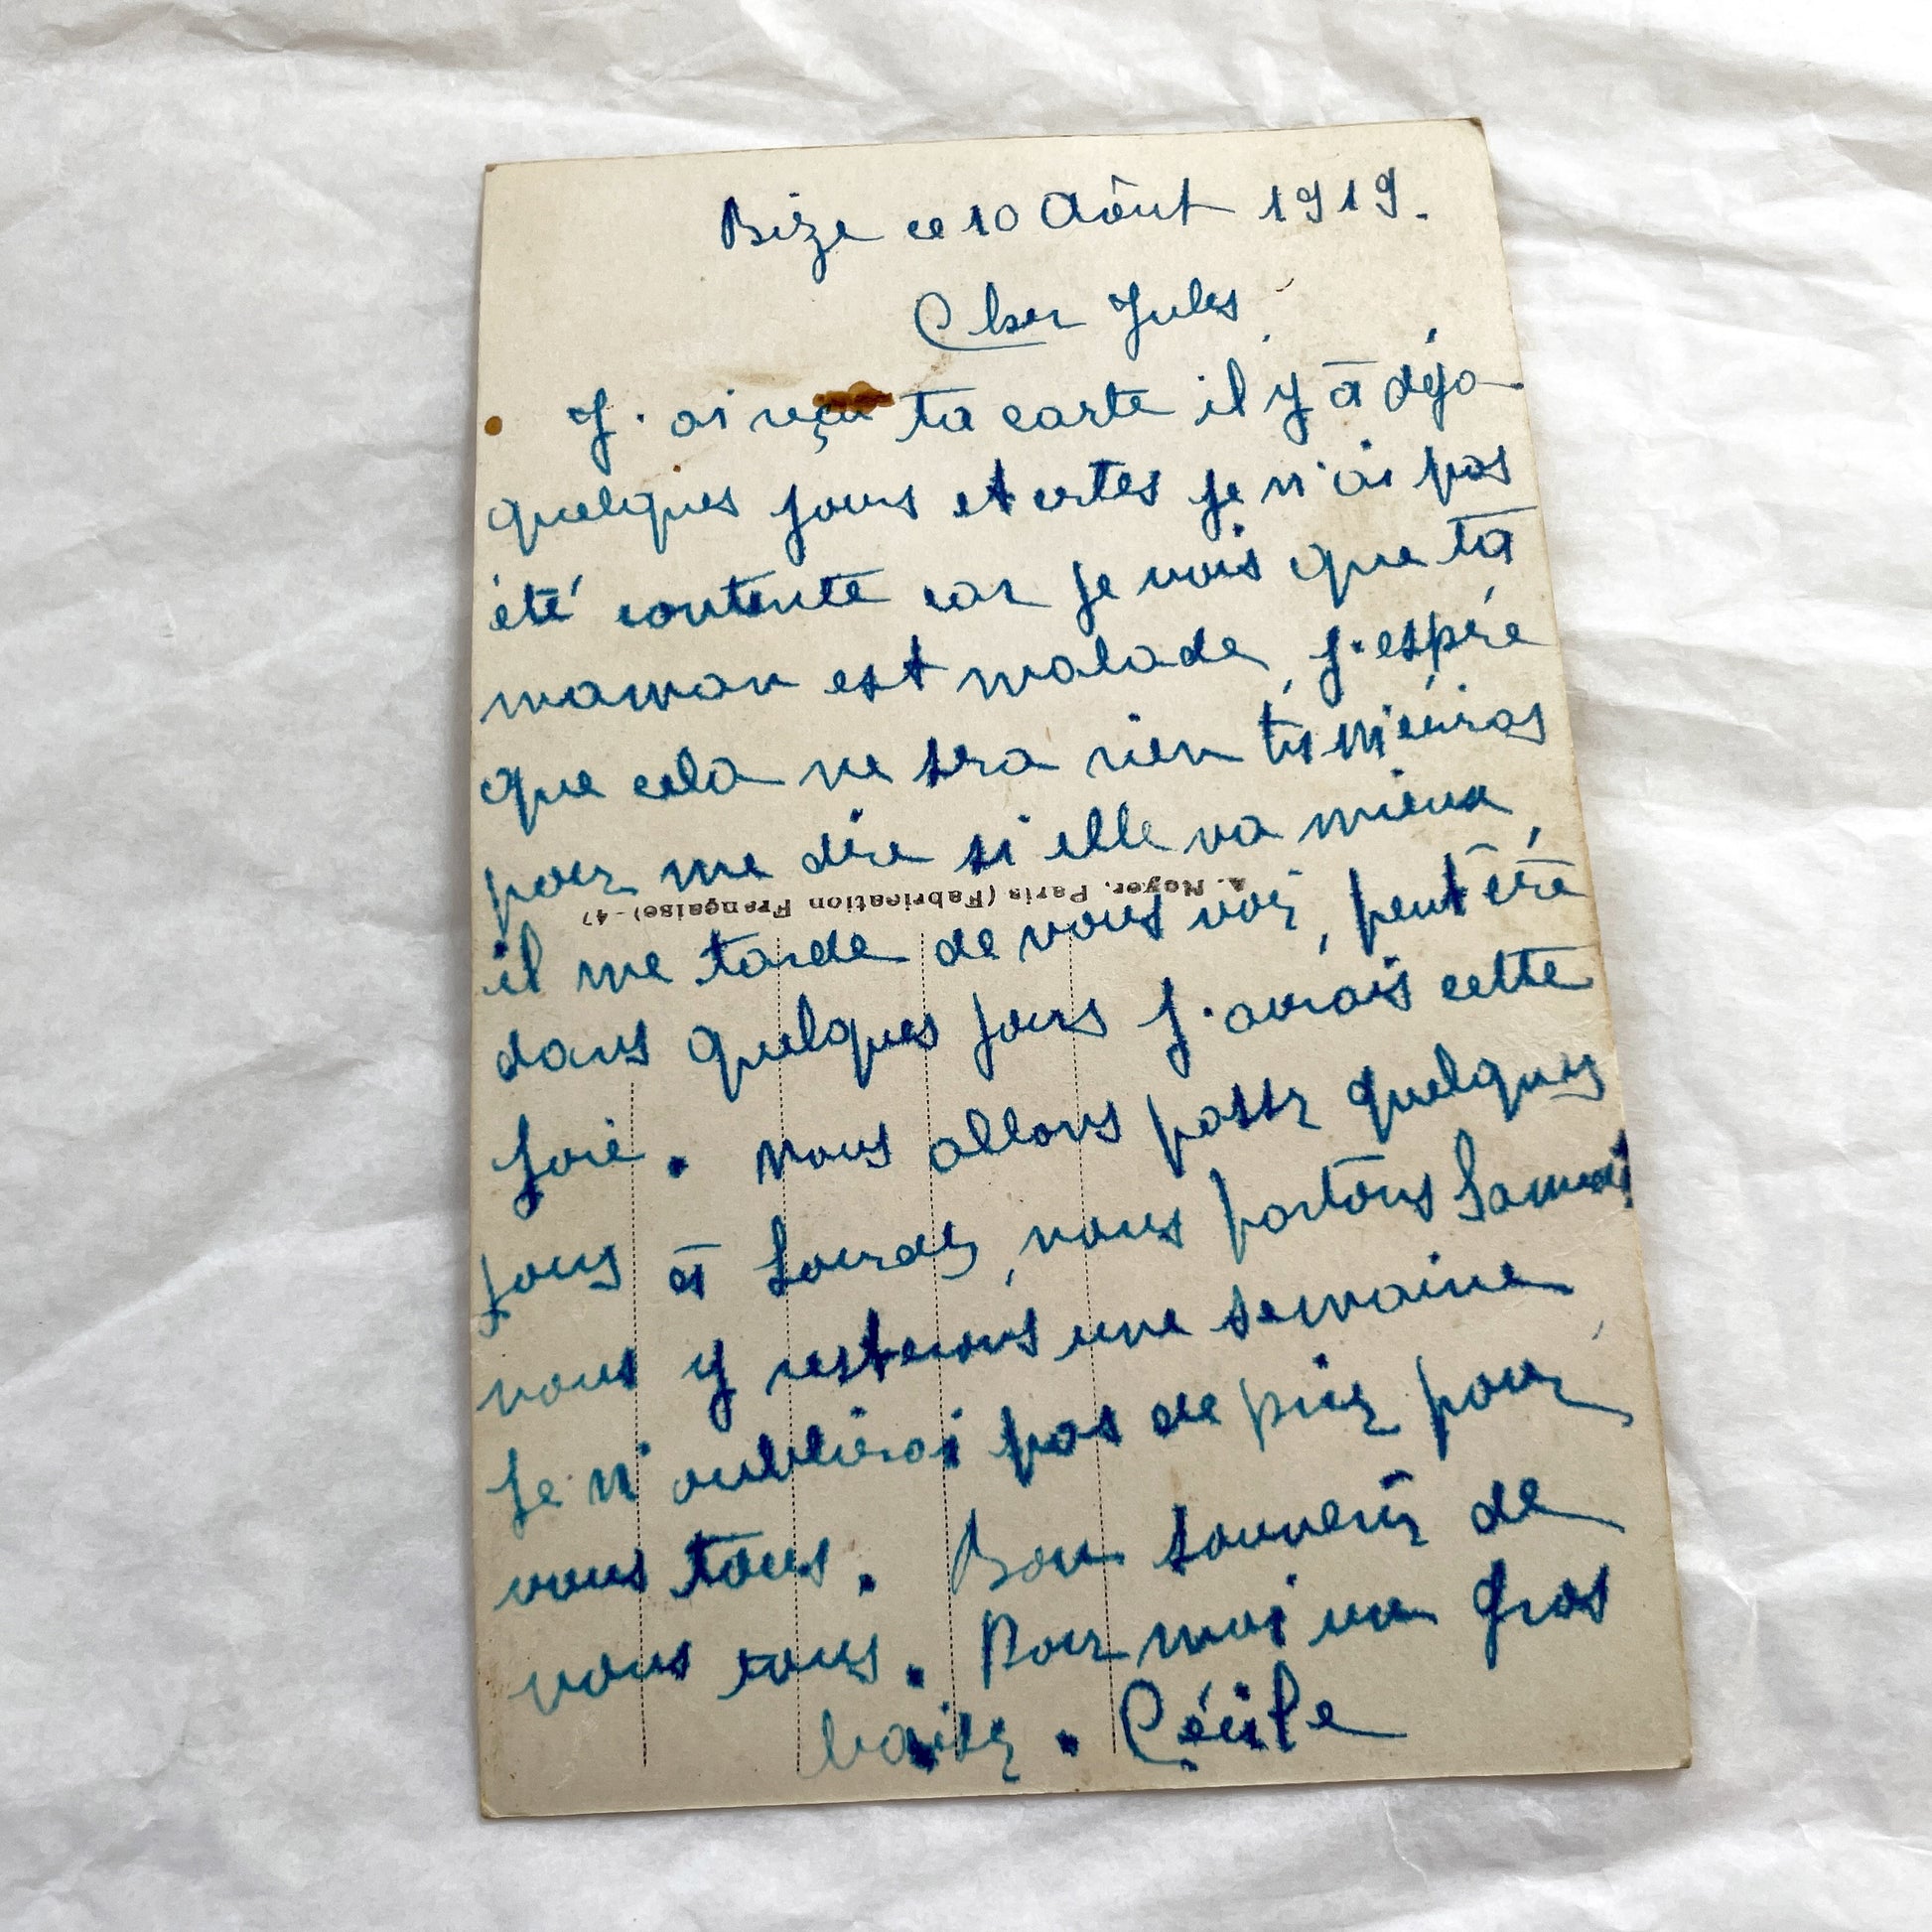 Bize ce 10 Aôut 1919.
Cher Jules,
J'ai reçu ta carte il y à déja
quelques jours et certes je n'ai pas
été contente car je vois que ta
maman est malade, j'espére
que cela ne sera rien tu m'éciras
pour me dire si elle va mieux,
A. Noyer, Paris (Fabrication Française)-47
il me tarde de vous voir, peut être
dans quelques jours j'aurais cette
joie. nous allons passer quelques
jours à Lourdes, nous partons Samedi
nous y resterons une semaine
je n'oublierai pas de prier pour
vous tous. Bon souvenir de
nous tous. Pour moi un gros
baiser. Cécile